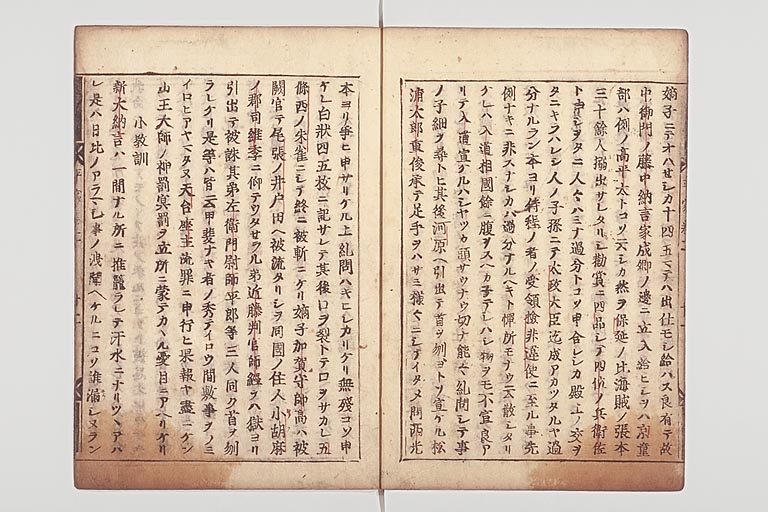 嫡子ニテオハセシカ十四五マテハ出仕モシ給ハス良有テ故
中御門ノ藤中納言家成卿ノ邊ニ立入給ヒシヲハ京童
部ハ例ノ高平太トコソ云シカ然ヲ保延ノ比海賊ノ張本
三十餘人搦出サレタリシ勸賞ニ四品シテ四位ノ兵衛佐
トヲタニ人々ハミナ過分トコソ申合レシカ殿上ノ交ヲ
タニキラハレシ人ノ子孫ニテ太政大臣迄成アカツタルヤ過
分ナルラン本ヨリ侍程ノ者ノ受領檢非違使ニ至ル事先
例ナキニ非スナシカハ過分ナルヘキト憚所モナウ散シタリ
ケレハ入道相國餘ニ腹ヲスヘカ子テハシ物ヲモ不宣良ア
リテ入道宣ケルハシヤツカ頭サウナウ切ナ能々糺問シテ事
ノ子細ヲ尋トヒ其後河原ヘ引出テ首ヲ刎ヨトソ宣ケル松
浦太郎重俊承テ足手ヲハサミ樣々ニシテイタメ問西光
本ヨリ爭ヒ申サリケル上糺問ハキヒシカリケリ無殘コソ申
ケレ白狀四五枚ニ記サレテ其後口ヲ裂トテ口ヲサカレ五
條西ノ朱雀ニシテ終ニ被斬ニケリ嫡子加賀守師高ハ被
闕官テ尾張ノ井戸田ヘ被流タリシヲ同國ノ住人小胡麻
ノ郡司維季ニ仰テウタセラル弟近藤判官師經ヲハ獄ヨリ
引出テ被誅其弟左衛門尉師平郎等三人同ク首ヲ刎
ラレケリ是等ハ皆云甲斐ナキ者ノ秀テイロウ間敷事ヲノミ
イロヒアヤマタヌ天台座主流罪ニ申行ヒ果報ヤ盡ニケン
山王大師ノ神罰冥罰ヲ立所ニ蒙テカヽル憂目ニアヘリケリ
小教訓
新大納言ハ一間ナル所ニ推籠ラレテ汗水ニナリツヽアハ
レ是ハ日比ノアラマシ事ノ洩聞ヘケルニコソ誰漏シヌラン